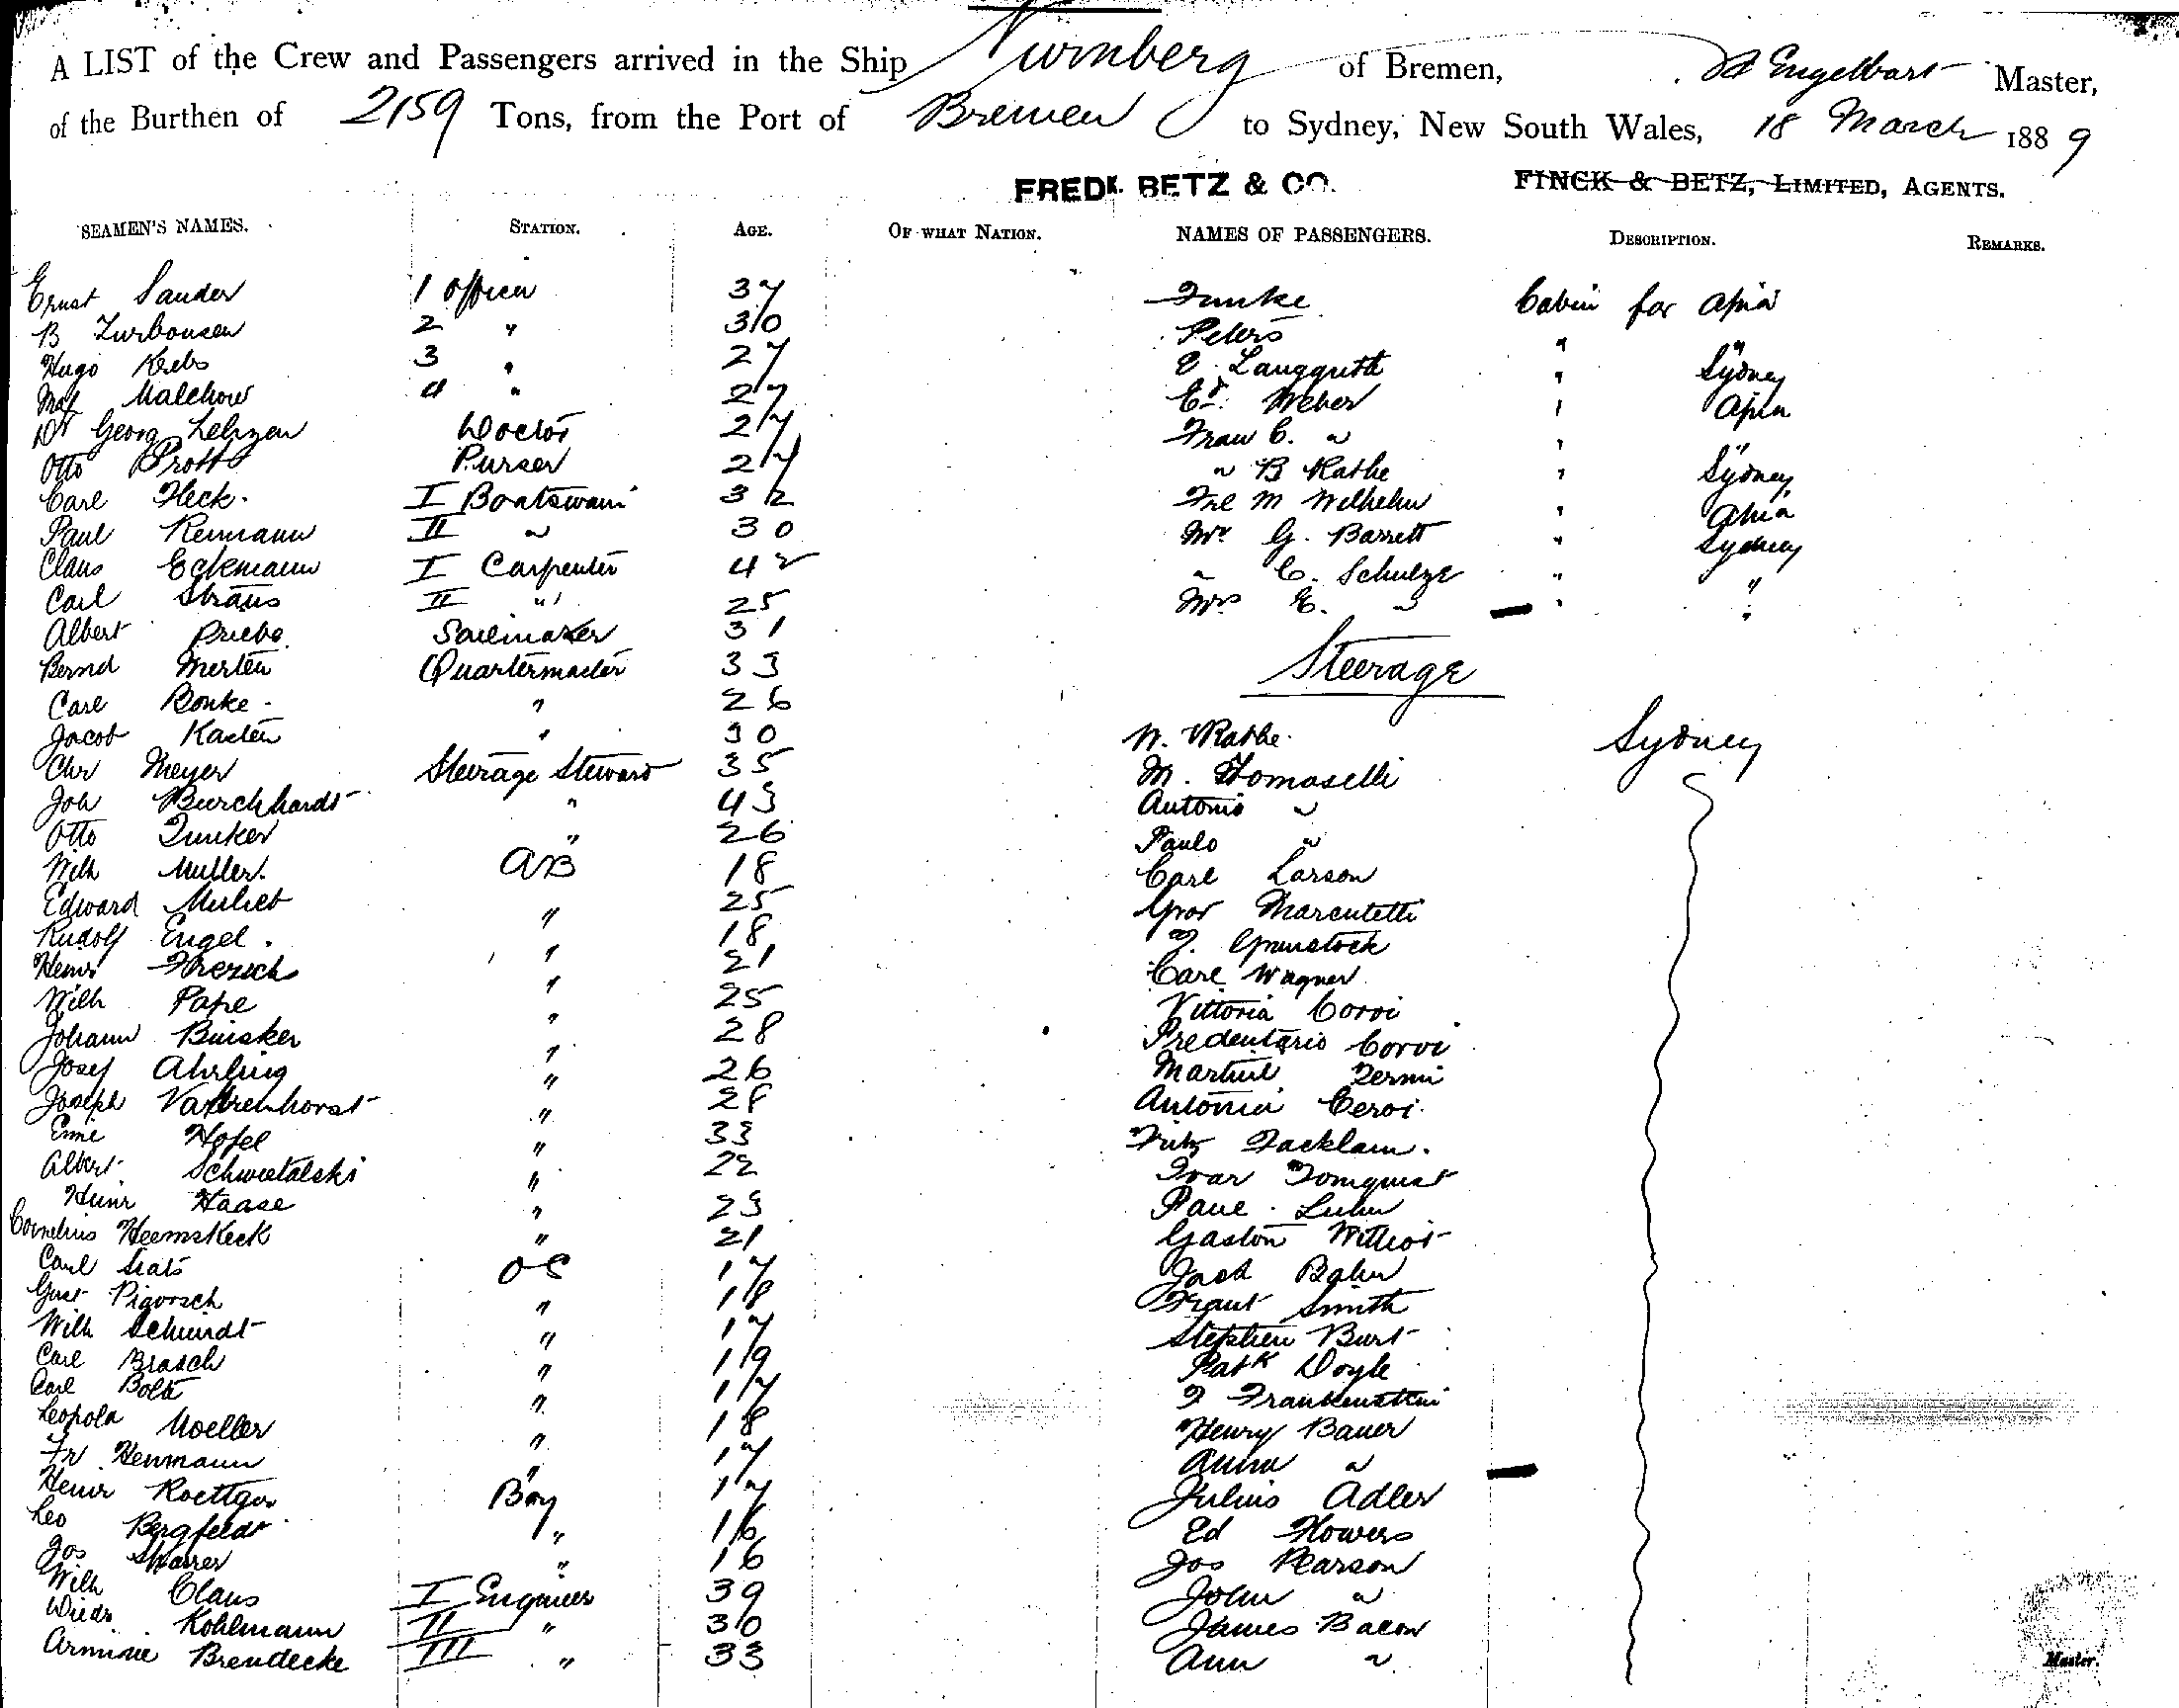 A LIST of the Crew and Passengers arrived in the Ship Nurnberg of Bremen, Engelbart Master,
of the Burthen of 2159 Tons, from the Port of Bremen to Sydney, New South Wales, 18 March 1889
FREDK. BETZ & CO. FINCK & BETZ, LIMITED, AGENTS.
SEAMEN'S NAMES. STATION. AGE. OF WHAT NATION. NAMES OF PASSENGERS. DESCRIPTION. REMARKS.
Ernst Sander 1 officer 37
B Zurbonsen 2 " 30
Hugo Krebs 3 " 27
Max Malchow 4 " 27
Dr Georg Lehzen Doctor 27
Otto Prott Purser 27
Carl Fleck. I Boatswain 32
Paul Reimann II " 30
Claus Eckmann I Carpenter 42
Carl Straus II " 25
Albert Priebe Sailmaker 31
Bernd Merten Quartermaster 33
Carl Bonke " 26
Jacob Kasten " 30
Chr Meyer Steerage Steward 35
Joh Burchhardt " 43
Otto Junker " 26
Wilh Muller. AB 18
Edward " 25
Rudolf Engel. " 18
Heinr " 21
Wilh Pape " 25
Johann " 28
Josef Ahrling " 26
Joseph " 28
Hofel " 33
Albert " 22
Heinr Haase " 23
Cornelius Heemskeck " 21
Carl OS 17
Gust " 18
Wilh Schmidt " 17
Carl Brasch " 19
Carl Bolte " 17
Leopold Moeller " 18
Fr Henmann " 17
Heinr Roettger Boy 17
Leo Bergfeldt " 16
Jos " 16
Wilh Claus I Engineer 39
Kohlmann II " 30
Brendecke III " 33
Funke Cabin for Apia
Peters " "
E. Langguth " Sydney
Ed. Weber " Apia
Frau C. " " "
" B Rathe " Sydney
Frl M Wilhelm " Apia
Mr G. Barrett " Sydney
" C. Schulze " "
Mrs E. " " "
Steerage
W. Rathe. Sydney
M. Tomaselli
Antonio "
Paulo "
Carl Larson
Marcutetti
Carl Wagner
Vittoria Corvi
Corvi
Zermi
Antonia Cervi.
Fritz Facklam.
Ivar Tornquist
Paul Luhn
Gaston
Jack
Smith
Stephen Burt
Patk Doyle
F Frankenstein
Henry Bauer
Anna "
Julius Adler
Ed Flowers
Jos Pearson
John "
James Bacon
Ann "
Master.